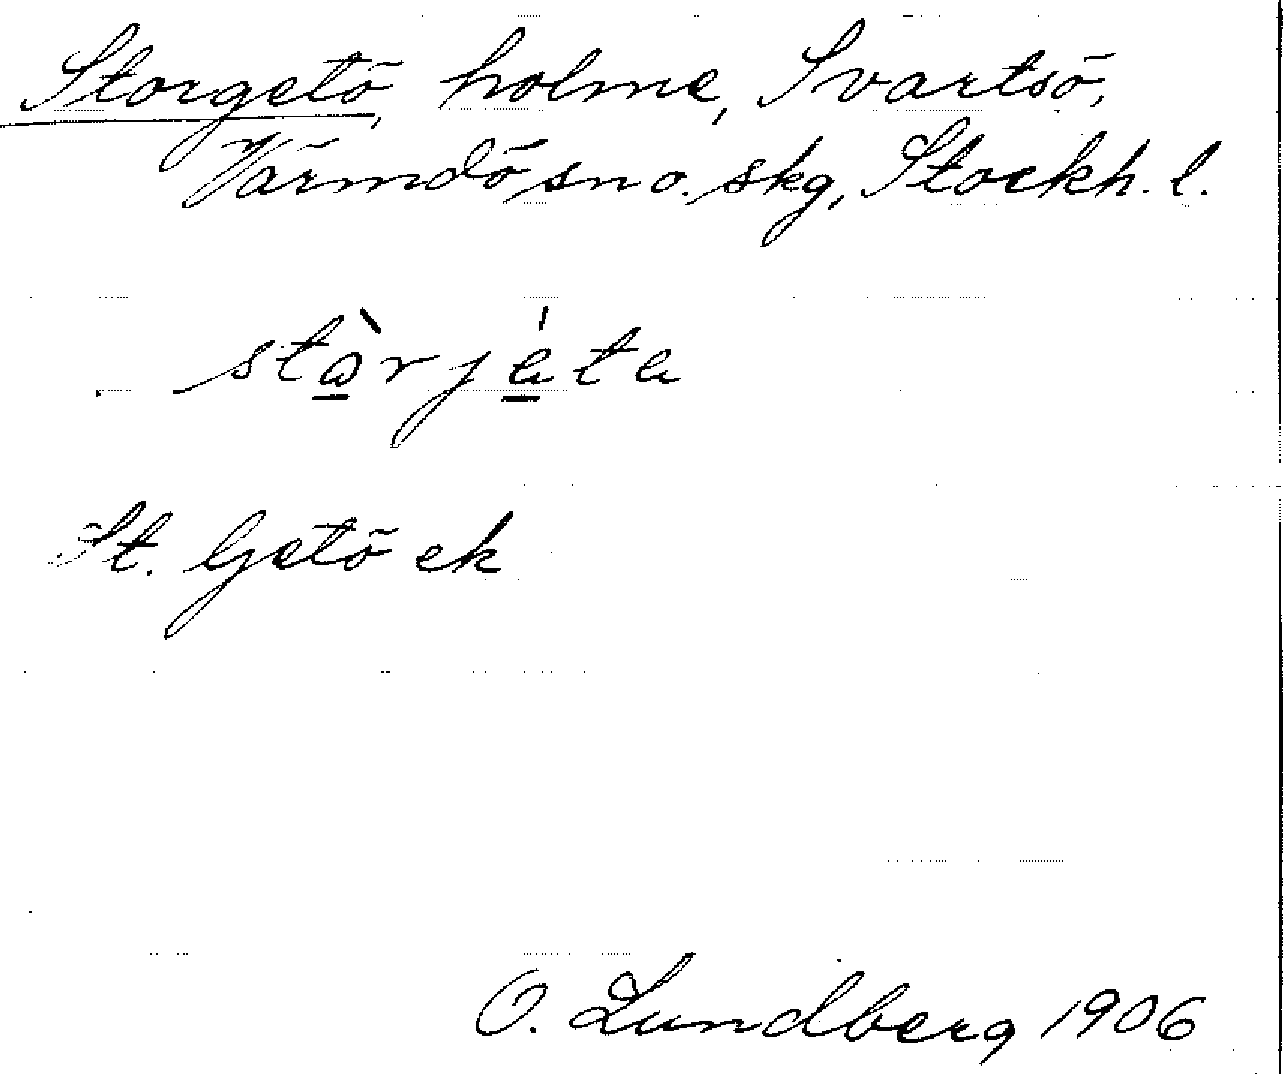 Storgetö, holme, Svartsö,
Värmdö sn o. skg, Stockh. l.
St. Getö ek
O. Lundberg 1906